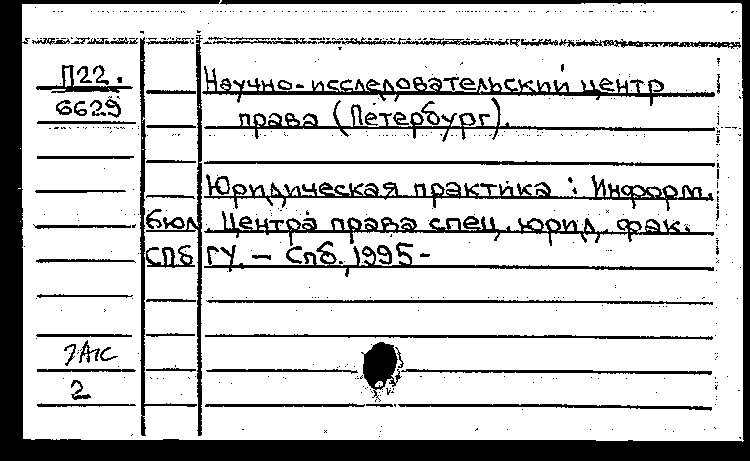 П22. Научно-исследовательский центр
6629 права (Петербург).
Юридическая практика : Информ.
бюл. Центра права спец. юрид. фак.
СПбГУ. – Спб., 1995 -
2